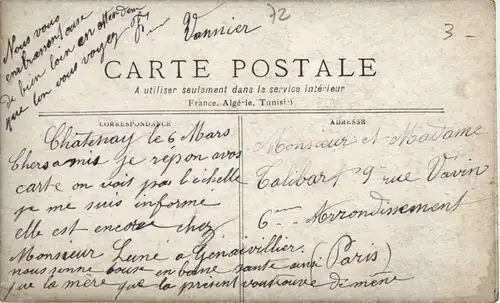 Nous vous
embrassons tous
de bien loin en attendan
que l'on vous voyez
Vannier
72
3-
CARTE POSTALE
A utiliser seulement dans le service intérieur
(France, Algérie, Tunisie)
CORRESPONDANCE
ADRESSE
Chatenay le 6 Mars
Chers amis je répon avos
carte on voit pas l'échelle
je me suis informe
elle est encore chez
Monsieur Lune a Genaivillier
nous somme tous en bone sante ainsi
que la mère que la present vous trouve de même
Monsieur et Madame
Talibart 9 rue Vavin
6me Arrondissement
(Paris)